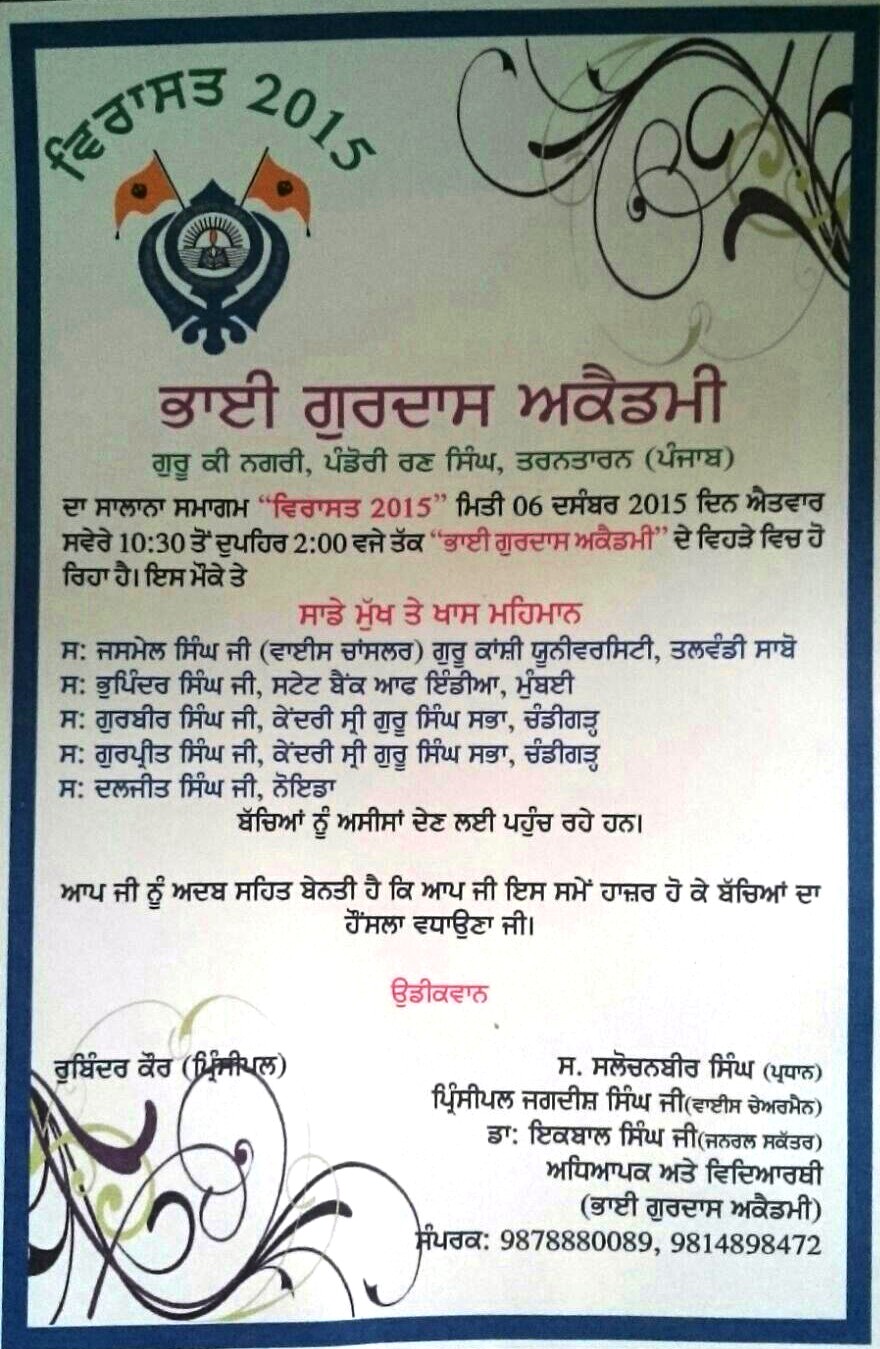 ਵਿਰਾਸਤ 2015
ਭਾਈ ਗੁਰਦਾਸ ਅਕੈਡਮੀ
ਗੁਰੂ ਕੀ ਨਗਰੀ, ਪੰਡੋਰੀ ਰਣ ਸਿੰਘ, ਤਰਨਤਾਰਨ (ਪੰਜਾਬ)
ਦਾ ਸਾਲਾਨਾ ਸਮਾਗਮ “ਵਿਰਾਸਤ 2015” ਮਿਤੀ 06 ਦਸੰਬਰ 2015 ਦਿਨ ਐਤਵਾਰ
ਸਵੇਰੇ 10:30 ਤੋਂ ਦੁਪਹਿਰ 2:00 ਵਜੇ ਤੱਕ “ਭਾਈ ਗੁਰਦਾਸ ਅਕੈਡਮੀ” ਦੇ ਵਿਹੜੇ ਵਿਚ ਹੋ
ਰਿਹਾ ਹੈ। ਇਸ ਮੌਕੇ ਤੇ
ਸਾਡੇ ਮੁੱਖ ਤੇ ਖਾਸ ਮਹਿਮਾਨ
ਸ: ਜਸਮੇਲ ਸਿੰਘ ਜੀ (ਵਾਈਸ ਚਾਂਸਲਰ) ਗੁਰੂ ਕਾਂਸ਼ੀ ਯੂਨੀਵਰਸਿਟੀ, ਤਲਵੰਡੀ ਸਾਬੋ
ਸ: ਭੁਪਿੰਦਰ ਸਿੰਘ ਜੀ, ਸਟੇਟ ਬੈਂਕ ਆਫ ਇੰਡੀਆ, ਮੁੰਬਈ
ਸ: ਗੁਰਬੀਰ ਸਿੰਘ ਜੀ, ਕੇਂਦਰੀ ਸ੍ਰੀ ਗੁਰੂ ਸਿੰਘ ਸਭਾ, ਚੰਡੀਗੜ੍ਹ
ਸ: ਗੁਰਪ੍ਰੀਤ ਸਿੰਘ ਜੀ, ਕੇਂਦਰੀ ਸ੍ਰੀ ਗੁਰੂ ਸਿੰਘ ਸਭਾ, ਚੰਡੀਗੜ੍ਹ
ਸ: ਦਲਜੀਤ ਸਿੰਘ ਜੀ, ਨੋਇਡਾ
ਬੱਚਿਆਂ ਨੂੰ ਅਸੀਸਾਂ ਦੇਣ ਲਈ ਪਹੁੰਚ ਰਹੇ ਹਨ।
ਆਪ ਜੀ ਨੂੰ ਅਦਬ ਸਹਿਤ ਬੇਨਤੀ ਹੈ ਕਿ ਆਪ ਜੀ ਇਸ ਸਮੇਂ ਹਾਜ਼ਰ ਹੋ ਕੇ ਬੱਚਿਆਂ ਦਾ
ਹੌਂਸਲਾ ਵਧਾਉਣਾ ਜੀ।
ਉਡੀਕਵਾਨ
ਰੁਬਿੰਦਰ ਕੌਰ (ਪ੍ਰਿੰਸੀਪਲ)
ਸ. ਸਲੋਚਨਬੀਰ ਸਿੰਘ (ਪ੍ਰਧਾਨ)
ਪ੍ਰਿੰਸੀਪਲ ਜਗਦੀਸ਼ ਸਿੰਘ ਜੀ(ਵਾਈਸ ਚੇਅਰਮੈਨ)
ਡਾ: ਇਕਬਾਲ ਸਿੰਘ ਜੀ(ਜਨਰਲ ਸਕੱਤਰ)
ਅਧਿਆਪਕ ਅਤੇ ਵਿਦਿਆਰਥੀ
(ਭਾਈ ਗੁਰਦਾਸ ਅਕੈਡਮੀ)
ਸੰਪਰਕ: 9878880089, 9814898472